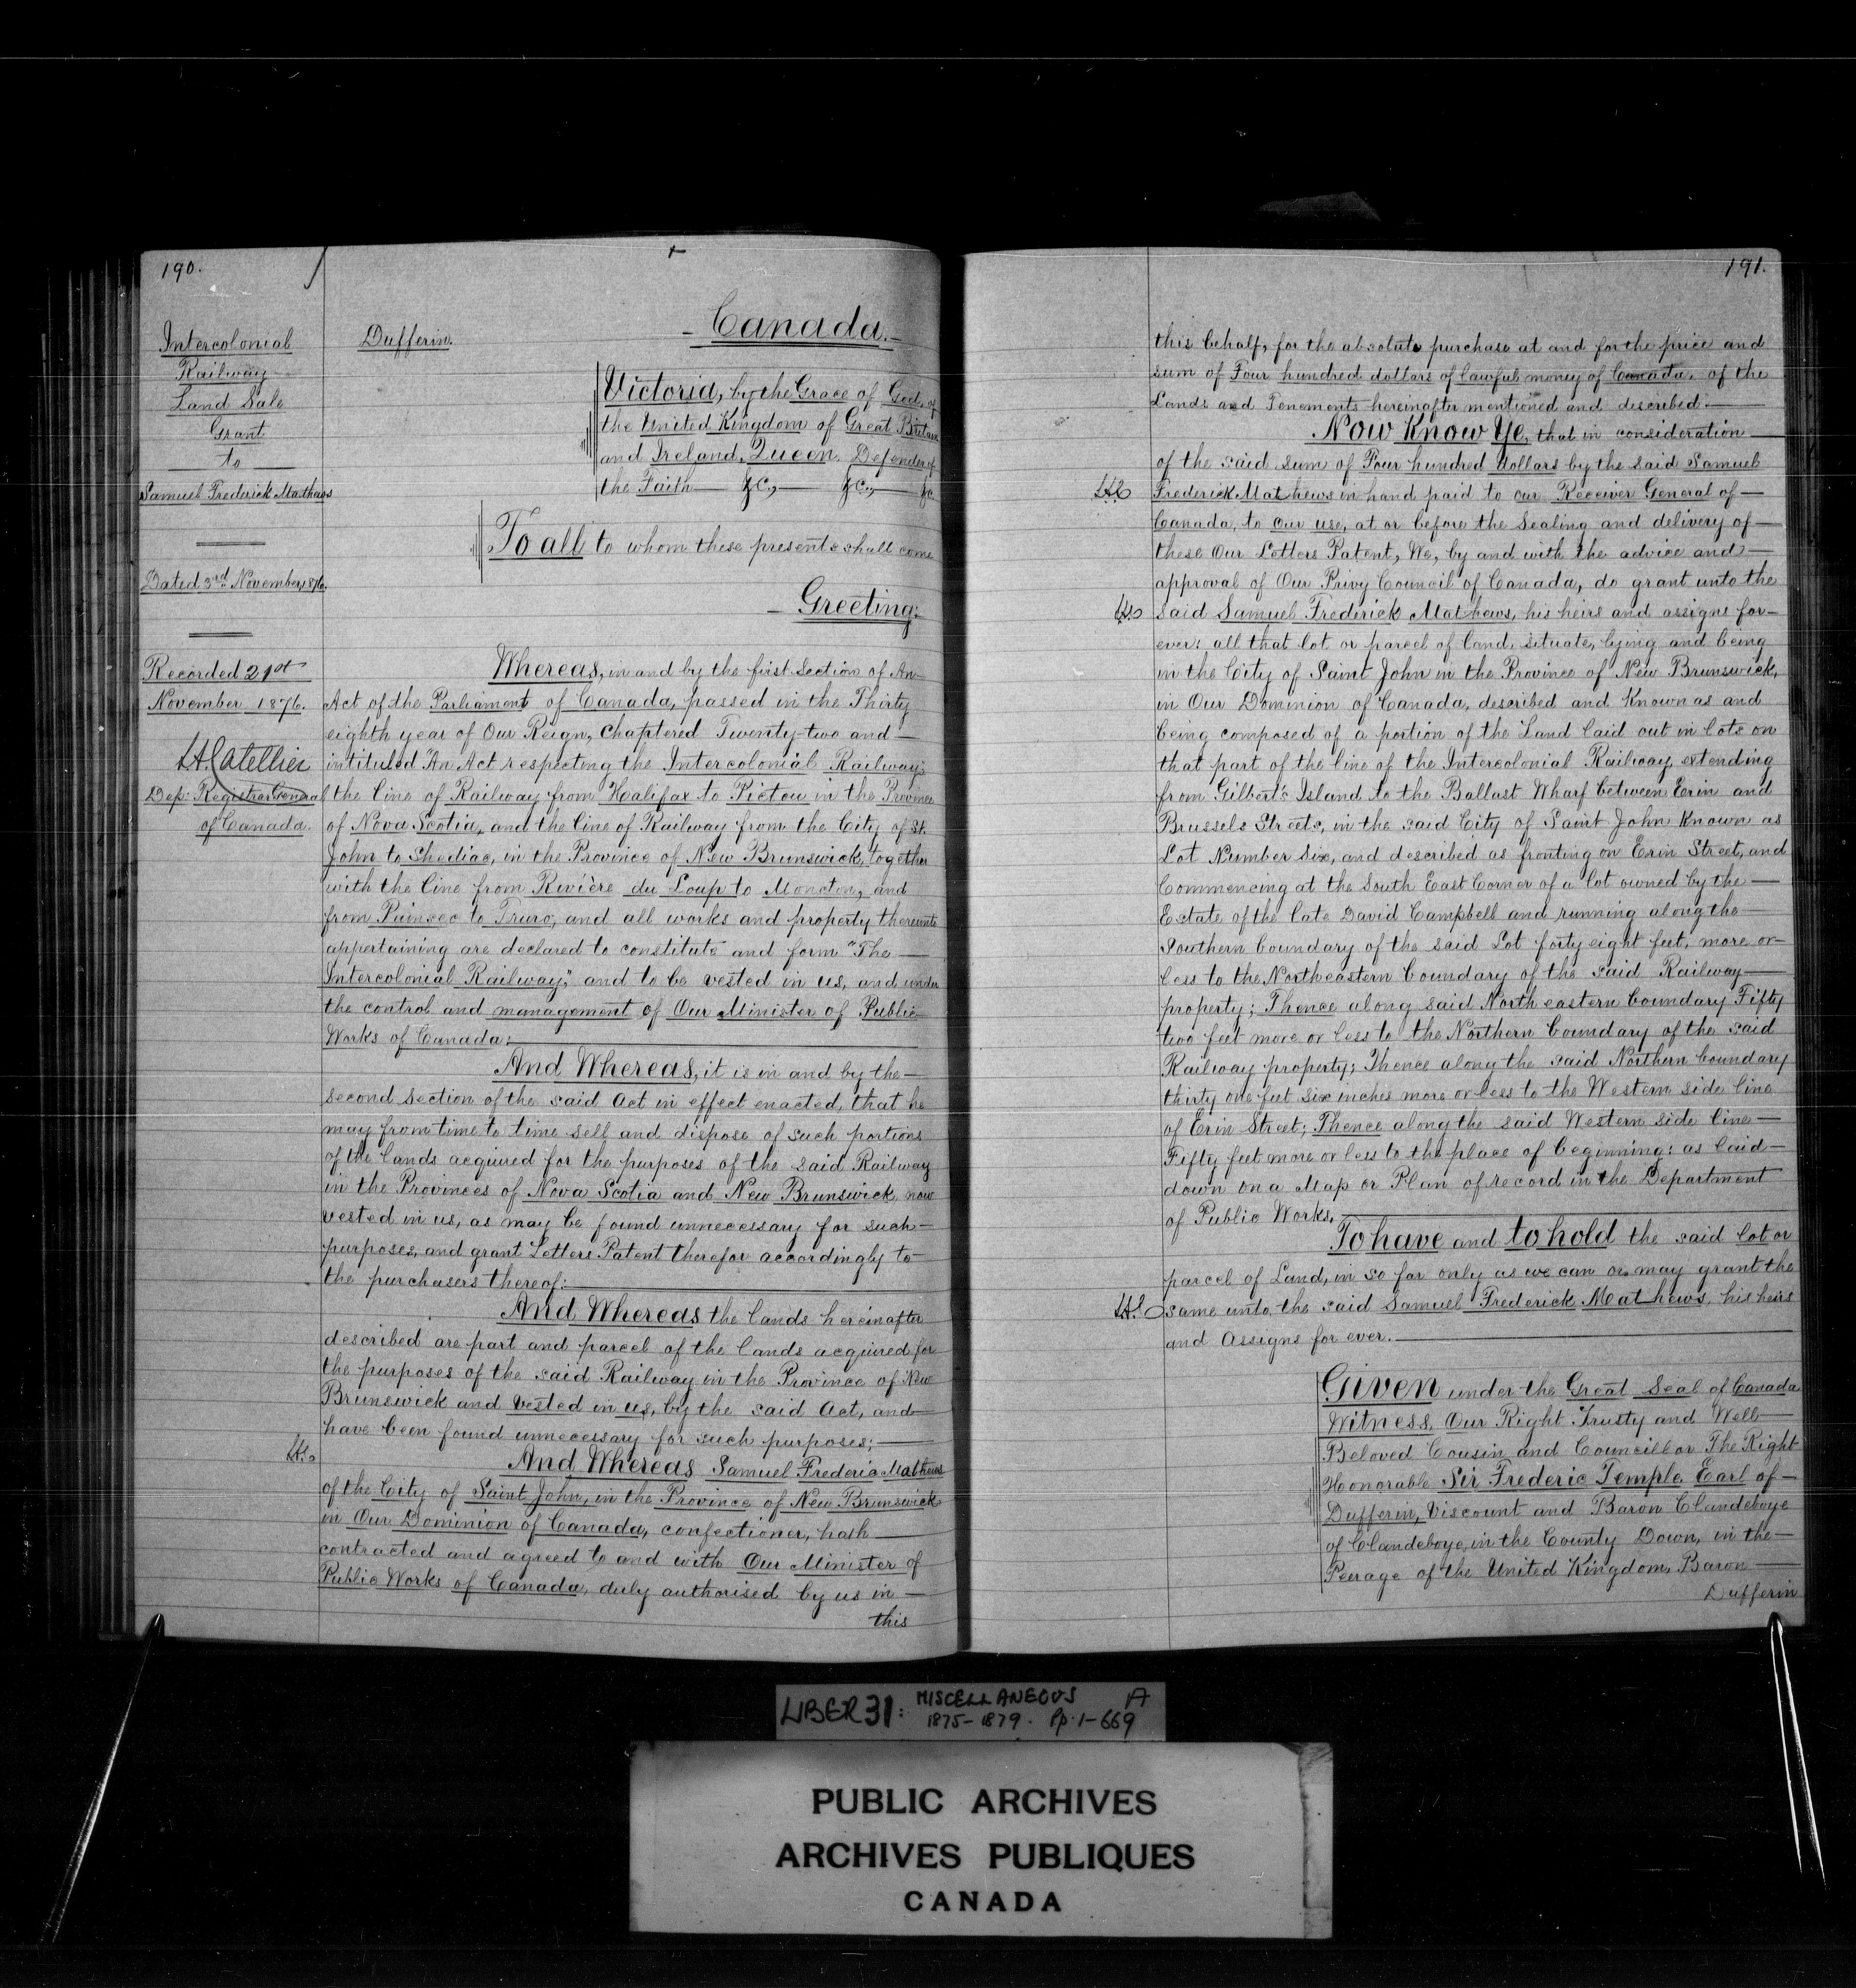 190.
Intercolonial
Railway
Land Sale
Grant
to
Samuel Frederick Mathews
Dated 3rd November, 1876.
Recorded 21st
November 1876.
LHCatellier
Dep: Registrar General
of Canada.
Dufferin.
- Canada. -
Victoria, by the Grace of God, of
the United Kingdom of Great Britain
and Ireland, Queen, Defender of
the Faith &c., &c., &c
To all to whom these presents shall come
- Greeting:
Whereas, in and by the first Section of An
Act of the Parliament of Canada, passed in the Thirty
eighth year of Our Reign, Chaptered Twenty-two and
intituled "An Act respecting the Intercolonial Railway",
the line of Railway from Halifax to Pictou in the Province
of Nova Scotia, and the line of Railway from the City of St.
John to Shediac, in the Province of New Brunswick, together
with the line from Rivière du Loup to Moncton, and
from Painsec to Truro, and all works and property thereunto
appertaining are declared to constitute and form "The
Intercolonial Railway," and to be vested in us, and under
the control and management of Our Minister of Public
Works of Canada:
And Whereas, it is in and by the
second Section of the said Act in effect enacted, that he
may from time to time sell and dispose of such portions
of the lands acquired for the purposes of the said Railway
in the Provinces of Nova Scotia and New Brunswick now
vested in us, as may be found unnecessary for such
purposes, and grant Letters Patent therefor accordingly to
the purchasers thereof:
And Whereas the lands hereinafter
described are part and parcel of the lands acquired for
the purposes of the said Railway in the Province of New
Brunswick and vested in us, by the said Act, and
have been found unnecessary for such purposes;
And Whereas Samuel Frederic Mathews
of the City of Saint John, in the Province of New Brunswick
in Our Dominion of Canada, confectioner, hath
contracted and agreed to and with Our Minister of
Public Works of Canada, duly authorised by us in
this
191.
this behalf, for the absolute purchase at and for the price and
sum of Four hundred dollars of lawful money of Canada, of the
Lands and Tenements hereinafter mentioned and described:
Now Know Ye, that in consideration
of the said sum of Four hundred Dollars by the said Samuel
Frederick Mathews in hand paid to our Receiver General of
Canada, to our use, at or before the Sealing and delivery of
these Our Letters Patent, We, by and with the advice and
approval of Our Privy Council of Canada, do grant unto the
said Samuel Frederick Mathews, his heirs and assigns for-
ever: all that lot or parcel of land, situate, lying and being
in the City of Saint John in the Province of New Brunswick,
in Our Dominion of Canada, described and Known as and
being composed of a portion of the Land laid out in lots on
that part of the line of the Intercolonial Railway extending
from Gilbert's Island to the Ballast Wharf between Erin and
Brussels Streets, in the said City of Saint John Known as
Lot Number Six, and described as fronting on Erin Street, and
Commencing at the South East Corner of a lot owned by the
Estate of the late David Campbell and running along the
Southern boundary of the said Lot forty eight feet, more or
less to the Northeastern boundary of the said Railway
property; Thence along said North eastern boundary Fifty
two feet more or less to the Northern boundary of the said
Railway property; Thence along the said Northern boundary
thirty one feet six inches more or less to the Western side line
of Erin Street; Thence along the said Western side line
Fifty feet more or less to the place of beginning: as laid
down on a Map or Plan of record in the Department
of Public Works.
To have and to hold the said lot or
parcel of Land, in so far only as we can or may grant the
same unto the said Samuel Frederick Mathews, his heirs
and Assigns for ever.
Given under the Great Seal of Canada
Witness, Our Right Trusty and Well
Beloved Cousin and Councillor The Right
Honorable Sir Frederic Temple Earl of
Dufferin, Viscount and Baron Clandeboye
of Clandeboye, in the County Down, in the
Peerage of the United Kingdom, Baron
Dufferin
LIBER 31: MISCELLANEOUS A
1875-1879. Pp. 1-669
PUBLIC ARCHIVES
ARCHIVES PUBLIQUES
CANADA